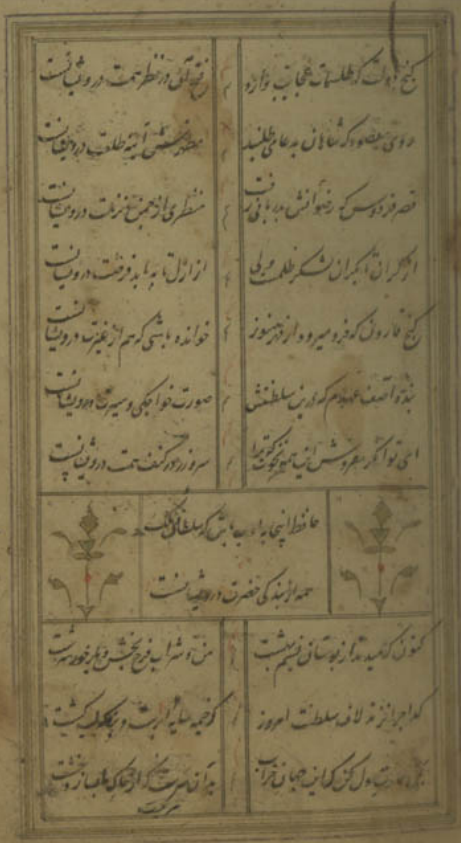 گنج عزلت که طلسمات عجایب دارد فتح آن در نظر همت درویشانست
روی مقصود که شاهان بدعا می طلبند مظهرش آینه طلعت درویشانست
قصر فردوس که رضوانش بدربانی رفت منظری از چمن نزهت درویشانست
از کران تا بکران لشکر ظلمست ولی از ازل تا بابد فرصت درویشانست
گنج قارون که فرو میرود از قهر هنوز خوانده باشی که هم از غیرت درویشانست
بنده آصف عهدم که درین سلطنتش صورت خواجگی و سیرت درویشانست
ای توانگر مفروش این همه نخوت که ترا سر و زر در کنف همت درویشانست
حافظ اینجا بادب باش که سلطانی و ملک
همه از بندگی حضرت درویشانست
کنون که میدمد از بوستان نسیم بهشت من و شراب فرح بخش و یار حور سرشت
گدا چرا نزند لاف سلطنت امروز که خیمه سایه ابرست و بزمگه لب کشت
دل کن که این جهان خراب بر آن سرست که از خاک ما بسازد خشت